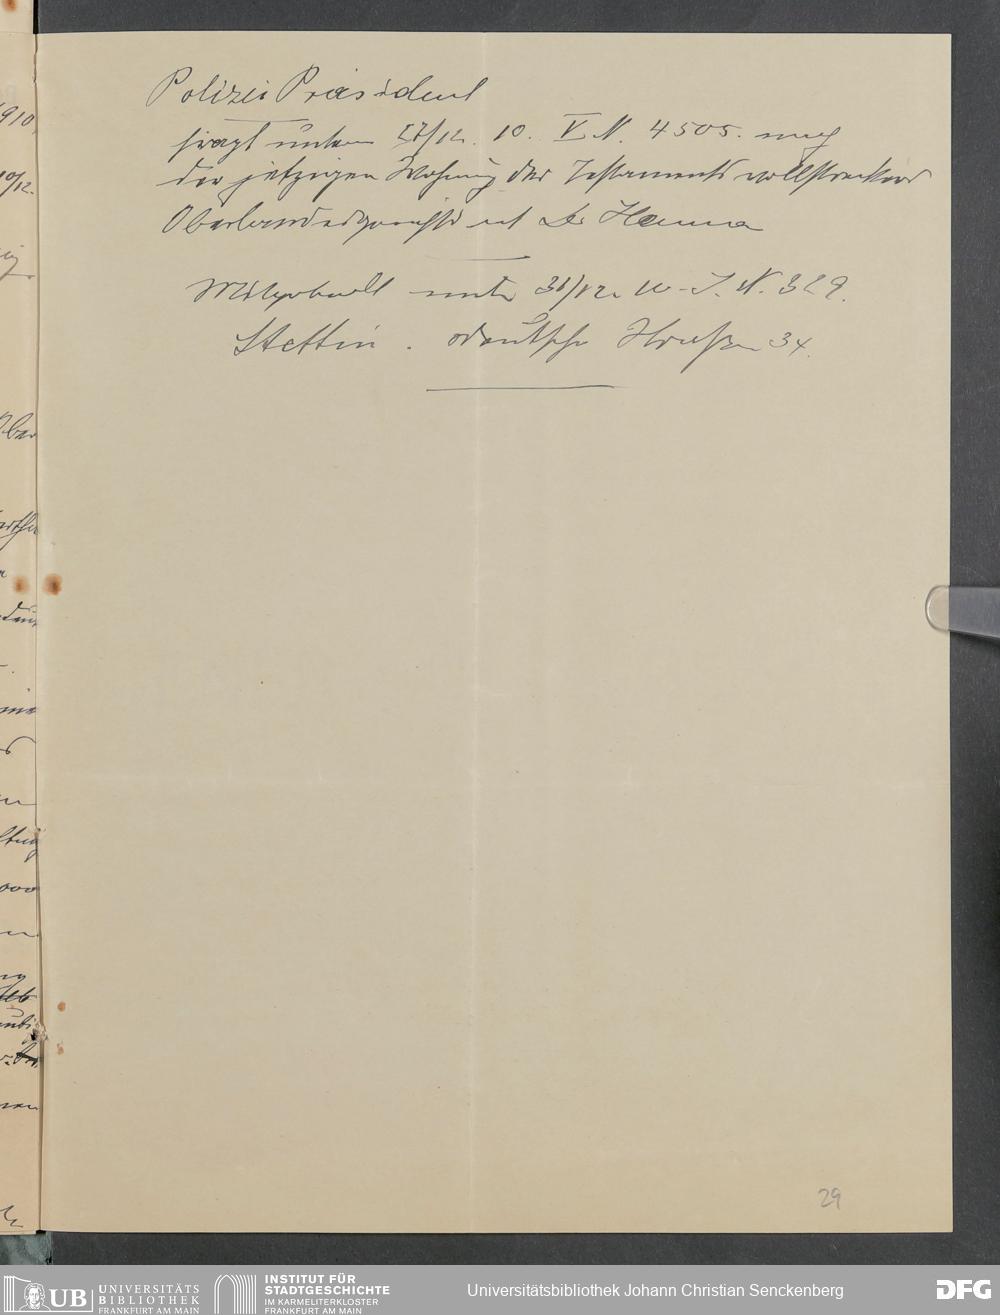 Polizei Präsident
fragt unterm 27/12. 10. V. N. 4505. nach
der jetzigen Wohnung des Testamentsvollstreckers
Oberlandesgerichtsrat Dr Hanna
Mitgeteilt unter 31/12. 10. J. N. 329.
Stettin. deutsche Straße 34.
29
UB UNIVERSITÄTS
BIBLIOTHEK
FRANKFURT AM MAIN
INSTITUT FÜR
STADTGESCHICHTE
IM KARMELITERKLOSTER
FRANKFURT AM MAIN
Universitätsbibliothek Johann Christian Senckenberg
DFG